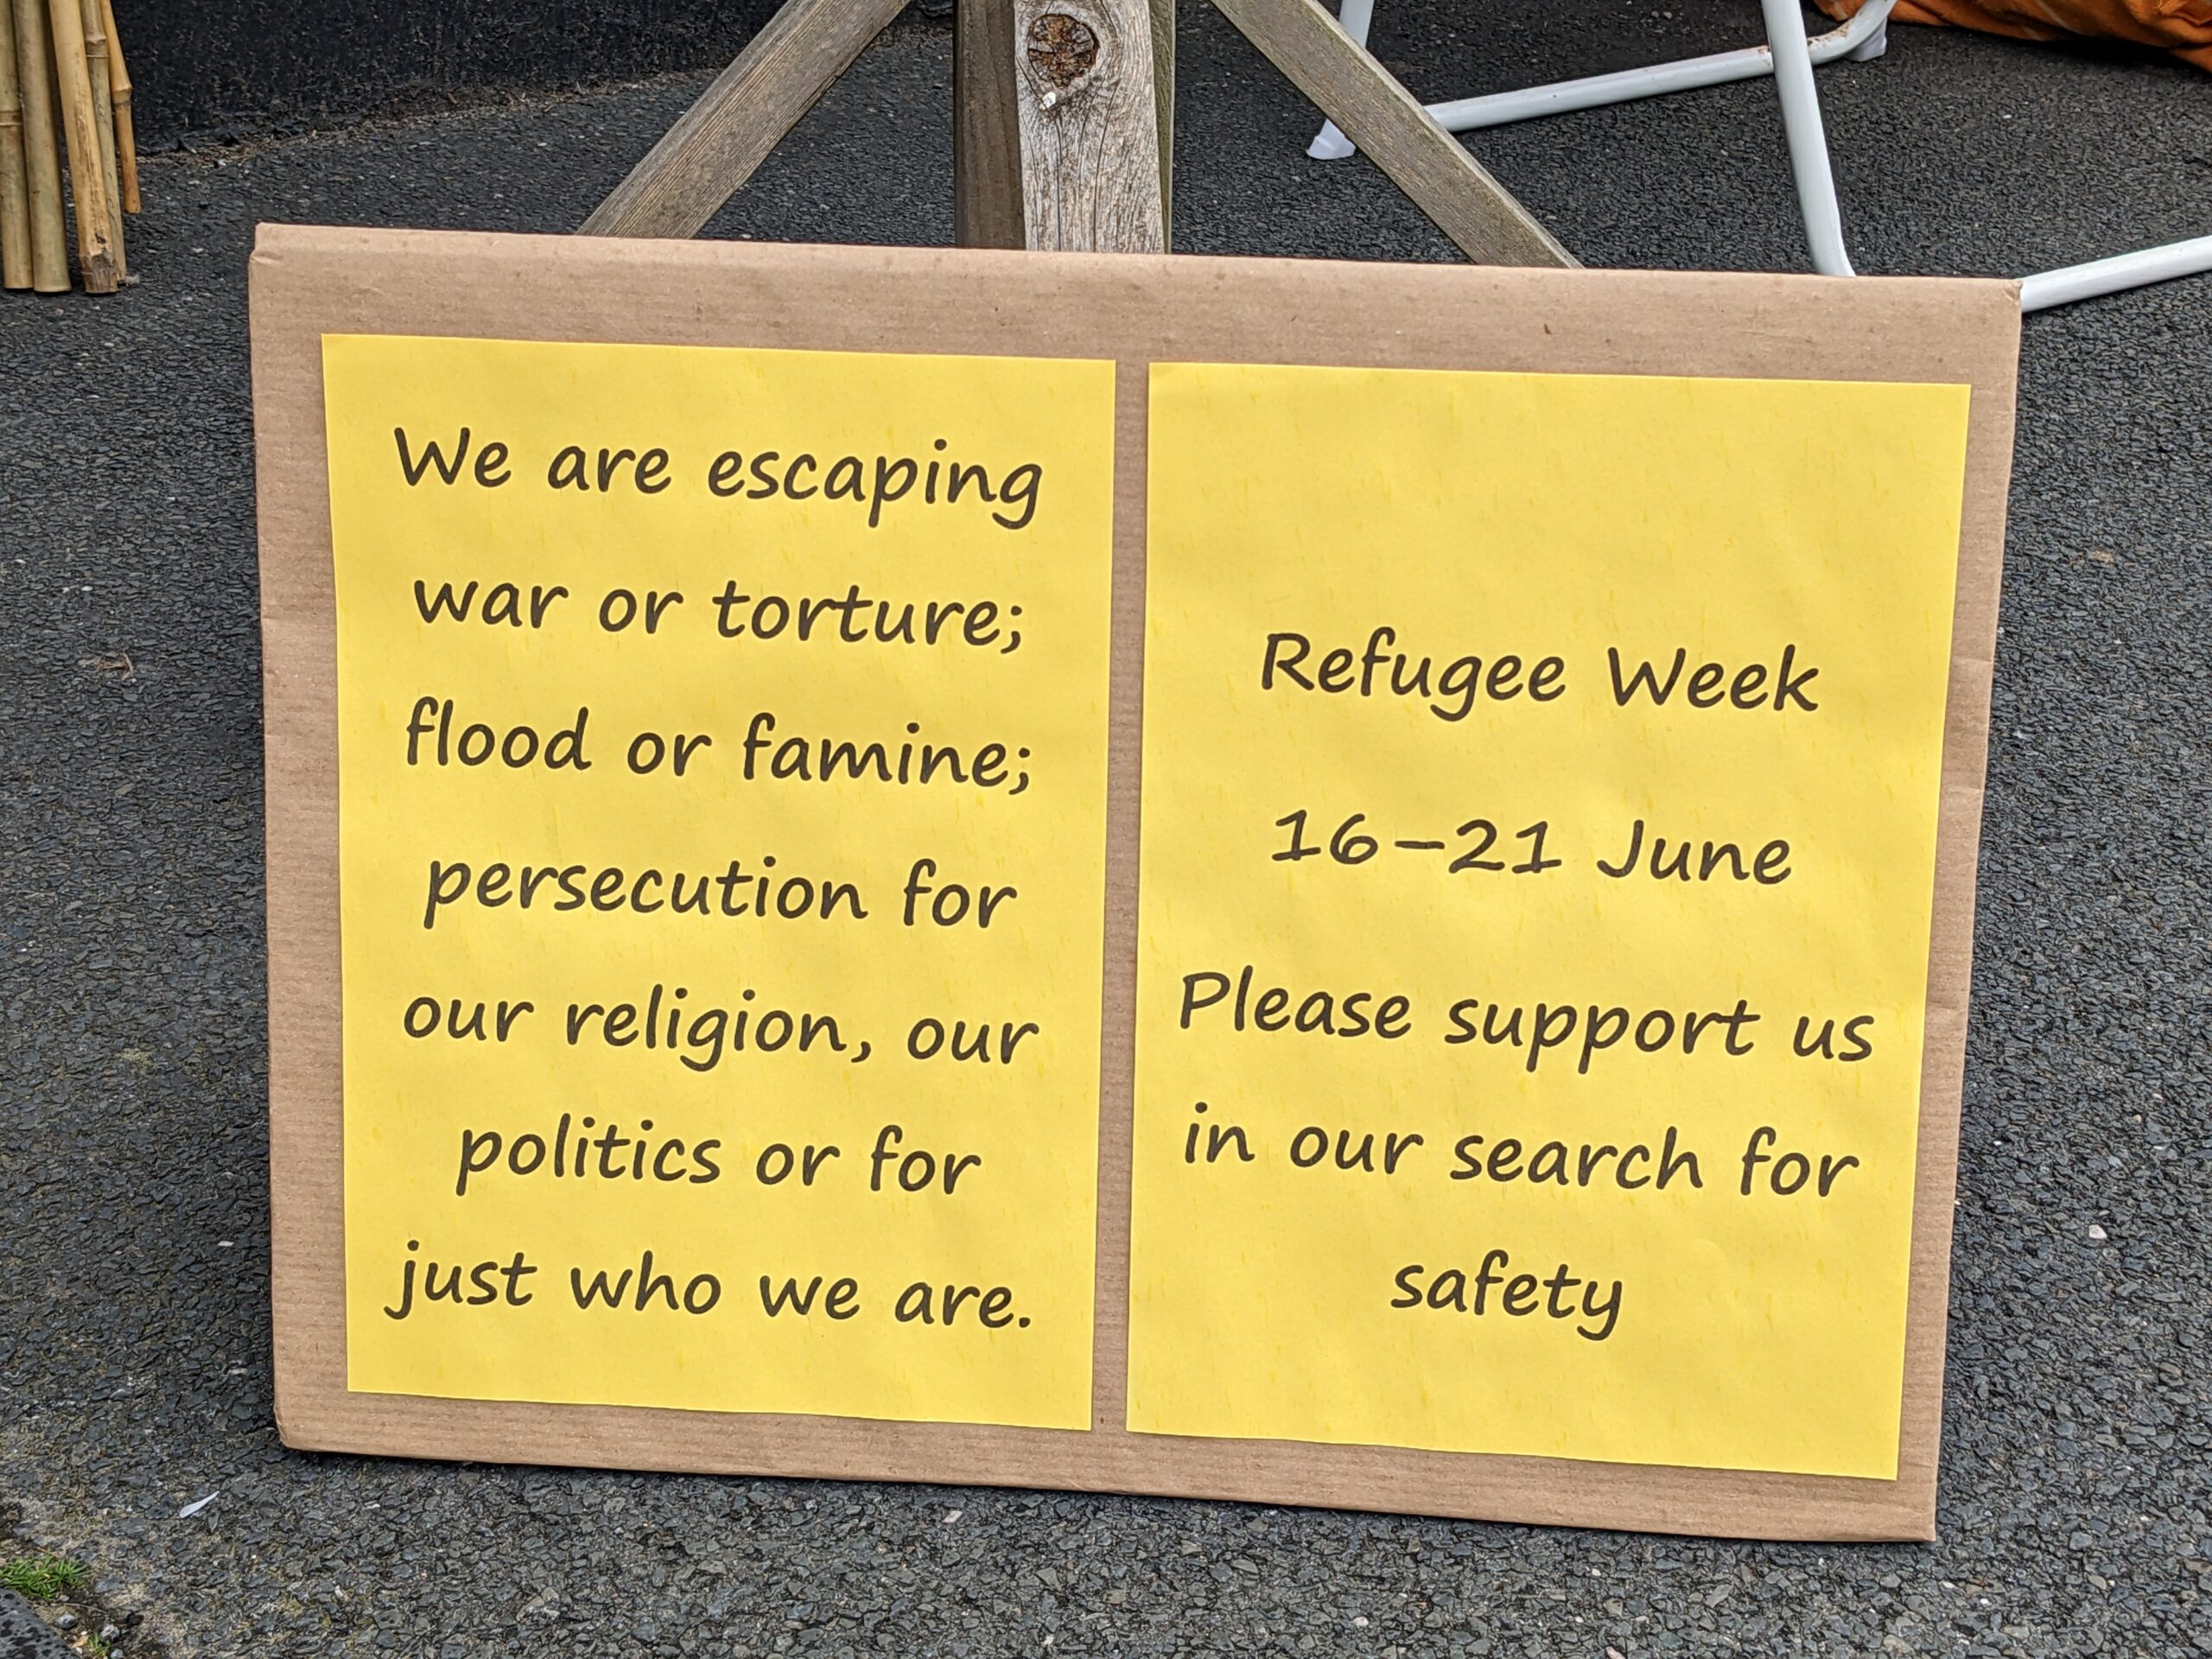 We are escaping
war or torture;
flood or famine;
persecution for
our religion, our
politics or for
just who we are.
Refugee Week
16–21 June
Please support us
in our search for
safety